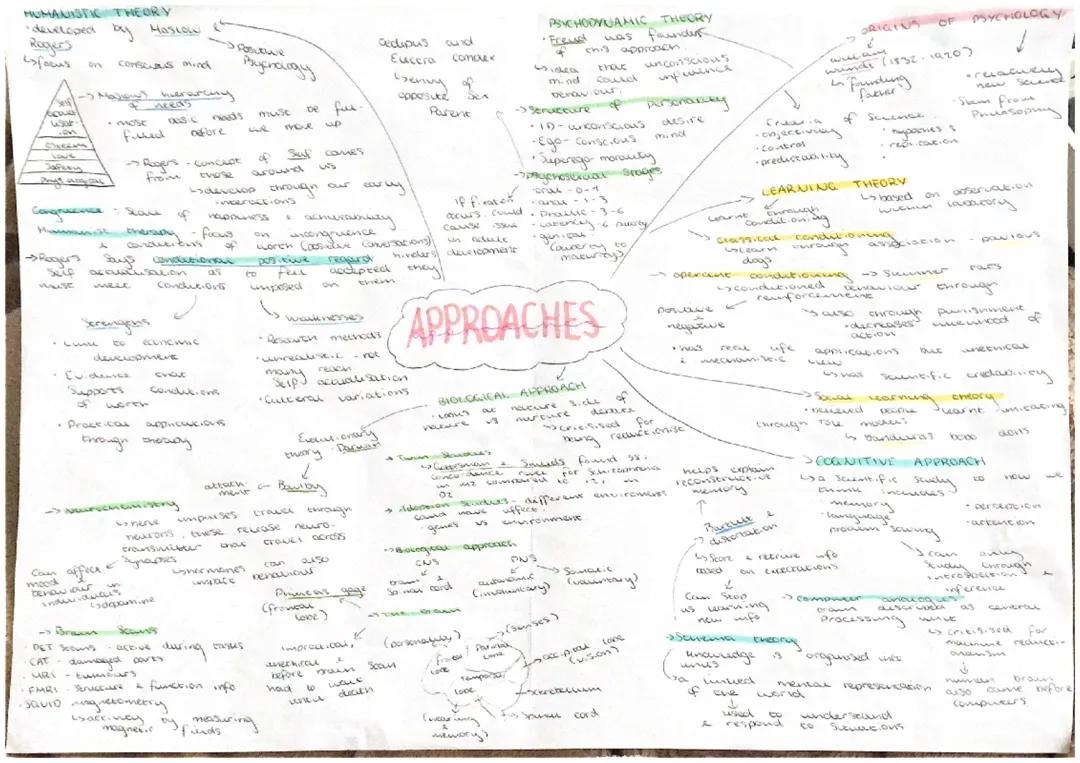 HUMANISTIC THEORY
• developed by Maslow &
Rogers
↳ focus on conscious mind
→ Positive
Psychology
→ Maslow's hierarchy
of needs
• most basic needs must be ful-
filled before we move up
Self
actual
isat-
ion
Esteem
Love
Safety
Physiological
→ Rogers - concept of Self comes
from those around us
↳ develop through our early
interactions
Congruence - State of happiness & achievability
Humanistic therapy - focus on incongruence
& conditions of worth (positive conversations)
→ Rogers says conditional positive regard hinders
self actualisation as to feel accepted they
must meet conditions imposed on them
Strengths
• Link to economic
development
• Evidence that
supports conditions
of worth
• Practical applications
through therapy
→ weaknesses
• Research methods
• unrealistic - not
many reach
self actualisation
• Cultural variations
Oedipus and
Electra complex
↳ envy of
opposite sex
Parent
PSYCHODYNAMIC THEORY
• Freud was founder
of this approach
↳ idea that unconscious
mind could influence
behaviour.
→ Structure of personality
• ID - unconscious desire
• Ego - conscious mind
• Superego - morality
→ Psychosexual Stages
• anal - 1-3
• Phallic - 3-6
• genital -
(puberty to
maturity)
If fixation
occurs could
cause issue
in adult
development
ORIGINS OF PSYCHOLOGY
(1832-1920)
↳ founding
father
• relatively
new science
• Stem from
Philosophy
Criteria of Science
• objectivity
• control
• predictability
• hypothesis
• replication
LEARNING THEORY
↳ based on observation
within laboratory
learnt through
conditioning
→ classical conditioning
↳ learn through association - pavlovs
dogs
→ operant conditioning → Skinner rats
↳ conditioned behaviour through
reinforcement
positive
negative
↳ also through punishment
• decreases likelihood of
action
• has real life applications but unethical
& mechanistic view
↳ has scientific credability
→ Social learning theory
• believed people learnt imitating
through role models
↳ banduras bobo dolls
APPROACHES
BIOLOGICAL APPROACH
• looks at nature side of
nature vs nurture debate
↳ criticised for
being reductionist
Evolutionary
theory - Darwin
attach-
ment ← Bowlby
→ Twin Studies
↳ Gottesman & Shields found
concordance rate for Schizophrenia
in MZ compared to in
DZ
→ Adoption Studies - different environment
could have affect.
• genes vs environment
→ Biological approach
CNS
brain &
spinal cord
PNS
autonomic
(involuntary)
→ Somatic
(voluntary)
→ The brain
(personality)
(senses)
frontal
lobe
Parietal
lobe
temporal
lobe
→ occipital lobe
(vision)
→ cerebellum
→ spinal cord
(hearing &
memory)
→ Neurochemistry
↳ nerve impulses travel through
neurons, these release neuro-
transmitter that travel across
synapses
Can affect
mood &
behaviour in
individuals
↳ dopamine
↳ hormones can also
impact behaviour
Phineas gage
(frontal
lobe)
impractical,
unethical &
before brain scan
had to wait
until death
→ Brain Scans
PET Scans - active during tasks
CAT - damaged parts
MRI - tumours
• FMRI - structure & function info
• SQUID magnetometry
↳ activity by measuring
magnetic fields
→ COGNITIVE APPROACH
↳ a scientific study to how we
think includes:
• memory
• language
• problem solving
• perception
• attention
↳ can only
study through
introspection &
inference
helps explain
reconstructive
memory
Bartlett &
distortation
↳ Store & retrive info
based on expectations
Can Stop
us learning
new info
→ computer analogies
brain described as central
processing unit
↳ criticised for
machine reducti-
onism
human brain
also came before
computers
→ Schema theory
knowledge is organised into
units
↳ a linked mental representation
of the world
↳ used to understand
& respond to situations